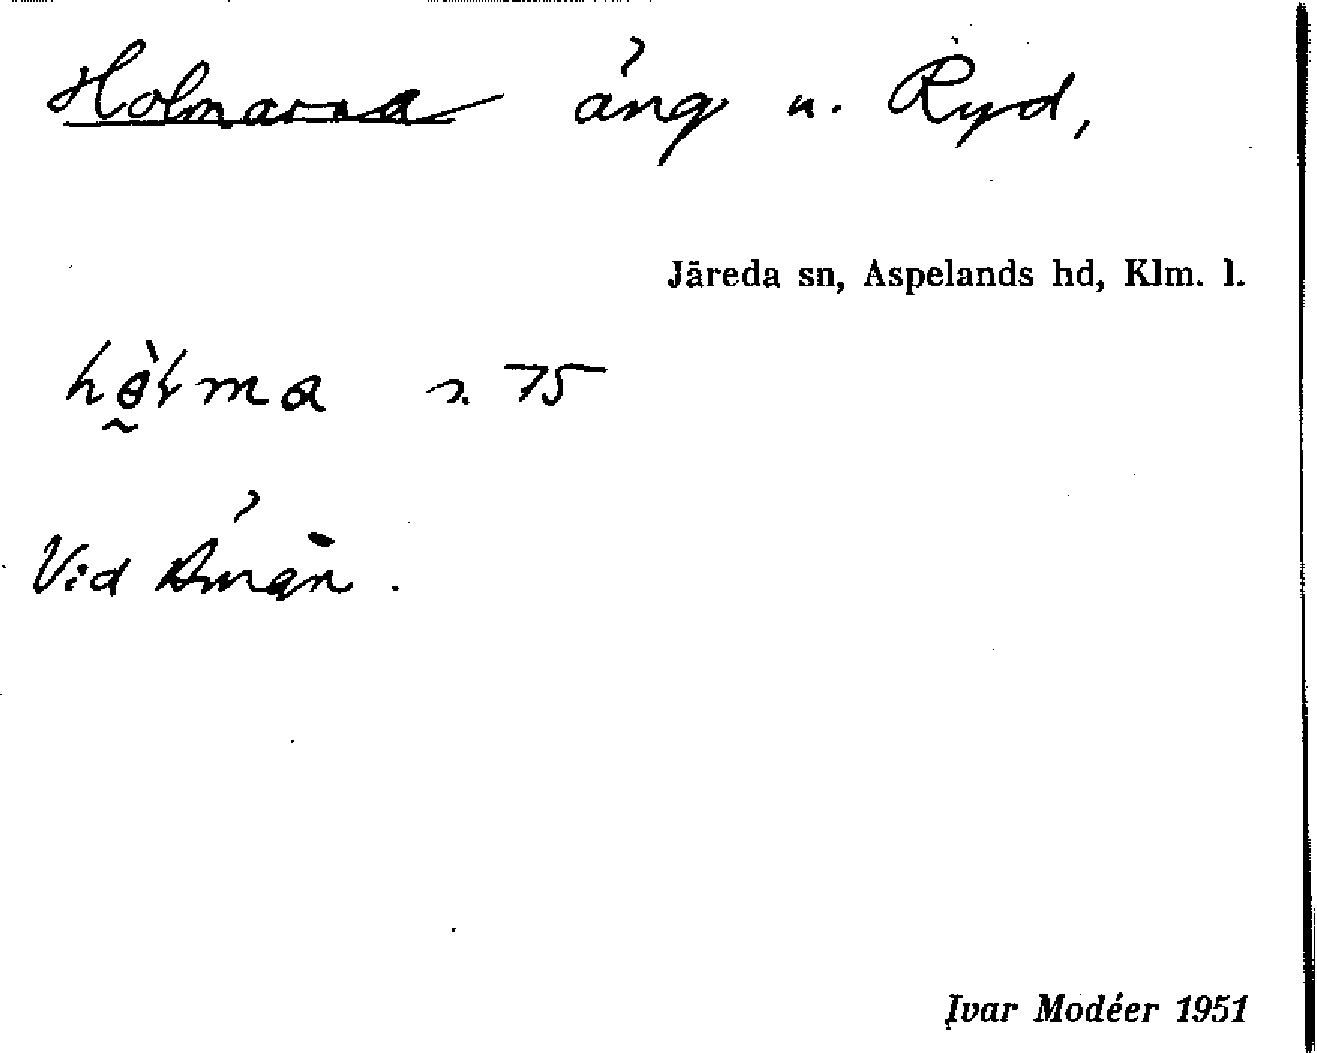 Holmarna äng u. Ryd,
Järeda sn, Aspelands hd, Klm. l.
hòlma s. 75
Vid Åmån.
Ivar Modéer 1951